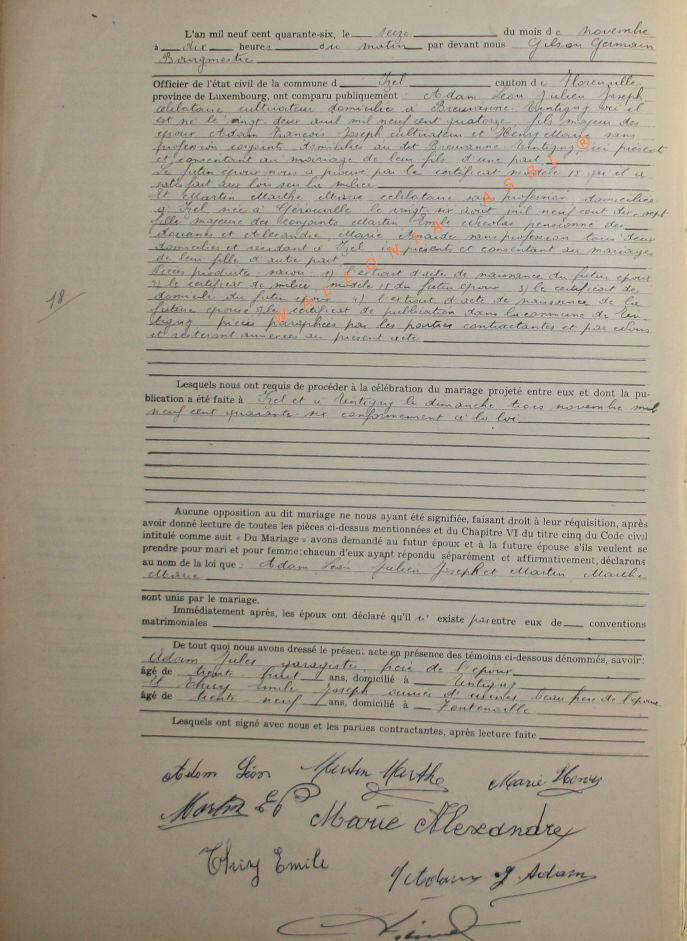 L'an mil neuf cent quarante-six, le seize du mois de novembre
à dix heures du matin par devant nous Gilson Germain
Bourgmestre
Officier de l'état civil de la commune d Izel canton de Florenville
province de Luxembourg, ont comparu publiquement Adam Léon Julien Joseph
célibataire cultivateur domicilié à Breuvanne Tintigny où il
est né le vingt-deux avril mil neuf cent quatorze fils majeur des
époux Adam François Joseph cultivateur et Henry Marie sans
profession conjoints domiciliés au dit Breuvanne Tintigny, ici présents
et consentant au mariage de leur fils d'une part
Le futur époux nous a prouvé par le certificat modèle 15 qu'il a
satisfait aux lois sur la milice
Et Martin Marthe Marie célibataire sans profession domiciliée
à Izel née à Gérouville le vingt-six août mil neuf cent dix-sept
fille majeure des conjoints Martin Emile Nicolas pensionné des
douanes et Alexandre Marie sans profession tous deux
domiciliés et résidant à Izel ici présents et consentant au mariage
de leur fille d'autre part
Pièces produites savoir 1) l'extrait d'acte de naissance du futur époux
2) le certificat de milice modèle 15 du futur époux 3) le certificat de
domicile du futur époux 4) l'extrait d'acte de naissance de la
future épouse 5) le certificat de publication dans la commune de Tin-
tigny pièces paraphées par les parties contractantes et par nous
et resteront annexées au présent acte
18
WALLONIA ASBL ®
Lesquels nous ont requis de procéder à la célébration du mariage projeté entre eux et dont la pu-
blication a été faite à Izel et à Tintigny le dimanche trois novembre mil
neuf cent quarante-six conformément à la loi
Aucune opposition au dit mariage ne nous ayant été signifiée, faisant droit à leur réquisition, après
avoir donné lecture de toutes les pièces ci-dessus mentionnées et du Chapitre VI du titre cinq du Code civil
intitulé comme suit « Du Mariage » avons demandé au futur époux et à la future épouse s'ils veulent se
prendre pour mari et pour femme: chacun d'eux ayant répondu séparément et affirmativement, déclarons
au nom de la loi que : Adam Léon Julien Joseph et Martin Marthe
Marie
sont unis par le mariage.
Immédiatement après, les époux ont déclaré qu'il n' existe pas entre eux de conventions
matrimoniales
De tout quoi nous avons dressé le présent acte en présence des témoins ci-dessous dénommés, savoir:
Adam Jules garagiste, frère de l'époux
âgé de trente huit ans, domicilié à Tintigny
Et Thiry Emile Joseph ouvrier d'usines beau frère de l'épouse
âgé de trente neuf ans, domicilié à Fontenoille
Lesquels ont signé avec nous et les parties contractantes, après lecture faite
Adam Léon Martin Marthe Marie Henry
Martin E Marie Alexandre
Thiry Emile J Adam J. Adam